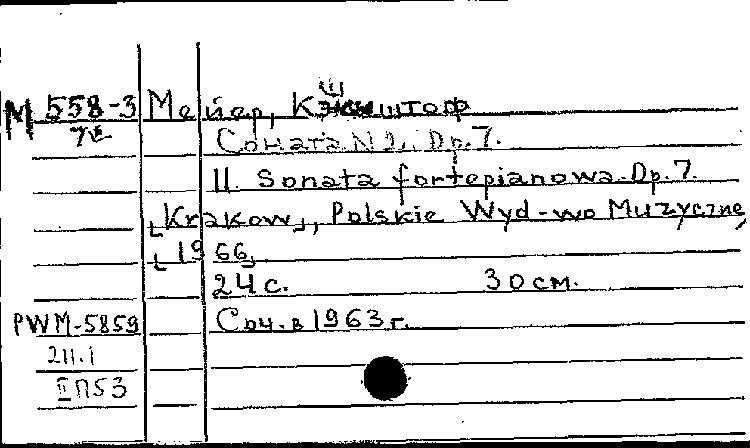 М 558-3 Мейер, Кшиштоф
72
Соната N 2, Op. 7.
II Sonata fortepianowa. Op. 7.
[Krakow], Polskie Wyd-wo Muzyczne,
[1966].
24 с. 30 см.
PWM-5859 Соч. в 1963 г.
2II.1
IIП53